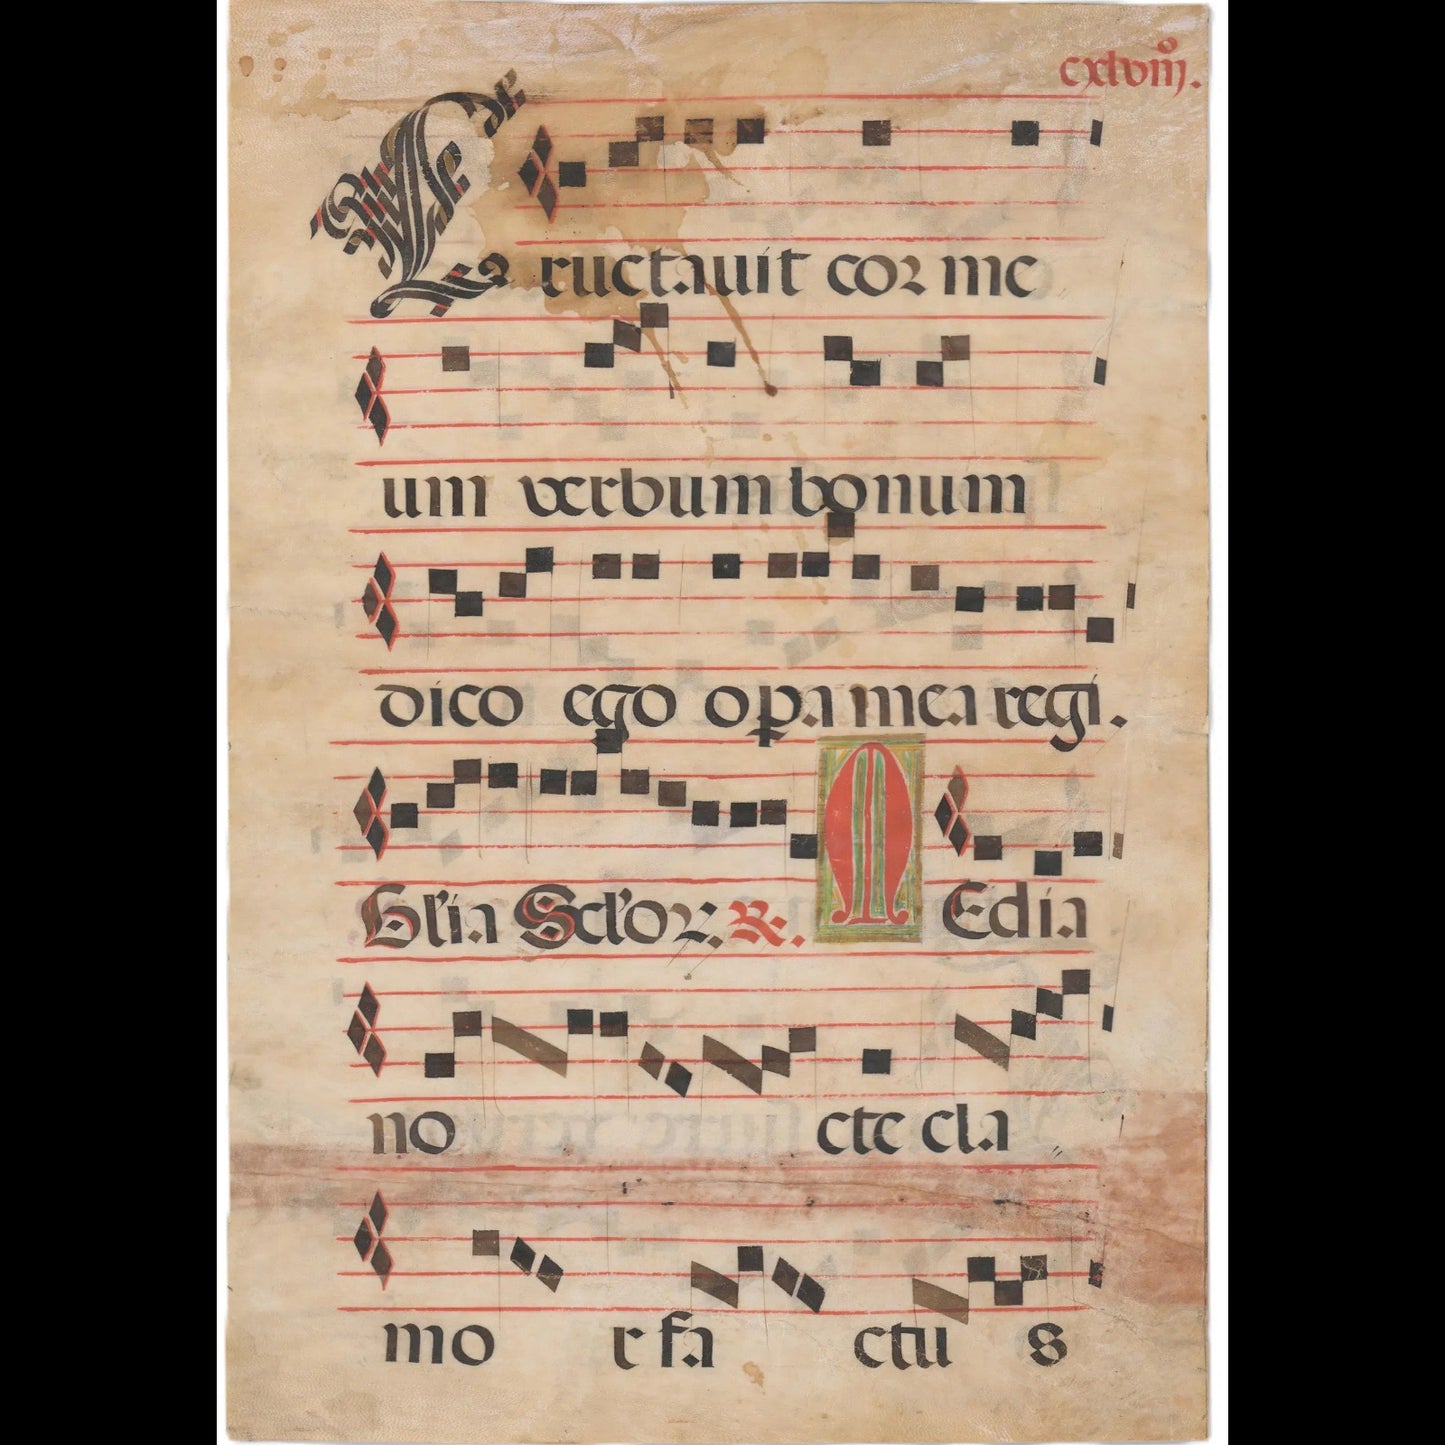 cxlviijº.
Eructauit cor me
um verbum bonum
dico ego opa mea regi.
Glia Sclor. ℟. MEdia
no cte cla
mo r fa ctu s